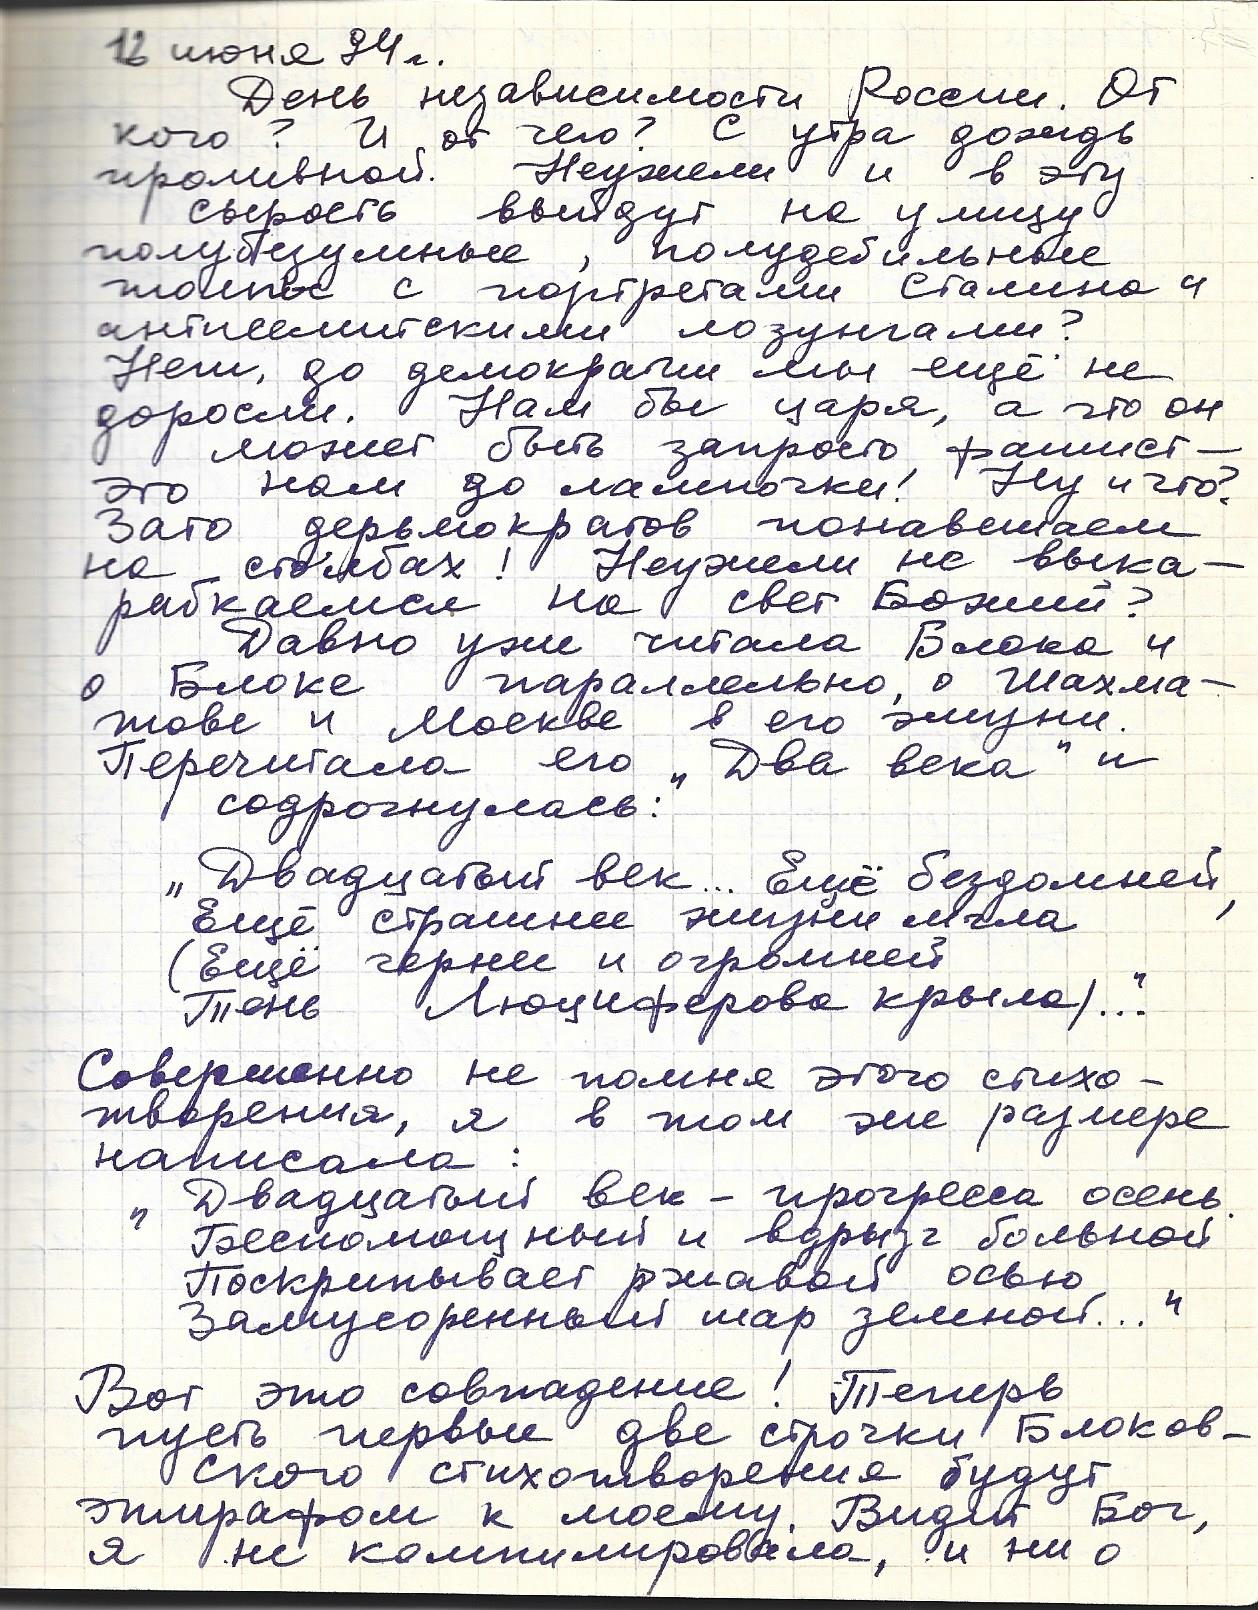 12 июня 94 г.
День независимости России. От
кого? И от чего? С утра дождь
проливной. Неужели и в эту
сырость выйдут на улицу
полубезумные, полудебильные
толпы с портретами Сталина и
антисемитскими лозунгами?
Нет, до демократии мы ещё не
доросли. Нам бы царя, а что он
может быть запросто фашист –
это нам до лампочки! Ну и что?
Зато дерьмократов понавешаем
на столбах! Неужели не выка-
рабкаемся на свет Божий?
Давно уже читала Блока и
о Блоке параллельно, о Шахма-
тове и Москве в его жизни.
Перечитала его „Два века" и
содрогнулась:
„Двадцатый век... Ещё бездомней,
Ещё страшнее жизни мгла
(Ещё чернее и огромней
Тень Люциферова крыла)..."
Совершенно не помня этого стихо-
творения, я в том же размере
написала:
„Двадцатый век – прогресса осень.
Беспомощный и вдрызг больной
Поскрипывает ржавой осью
Замусоренный шар земной..."
Вот это совпадение! Теперь
пусть первые две строчки Блоков-
ского стихотворения будут
эпиграфом к моему. Видит Бог,
я не компилировала, и ни о